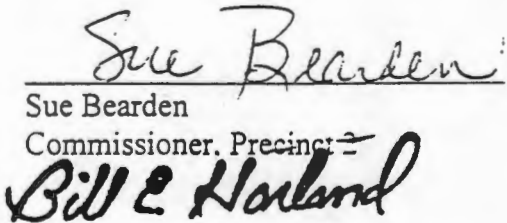 Sue Bearden
Sue Bearden
Commissioner, Precinct 2
Bill E Harland